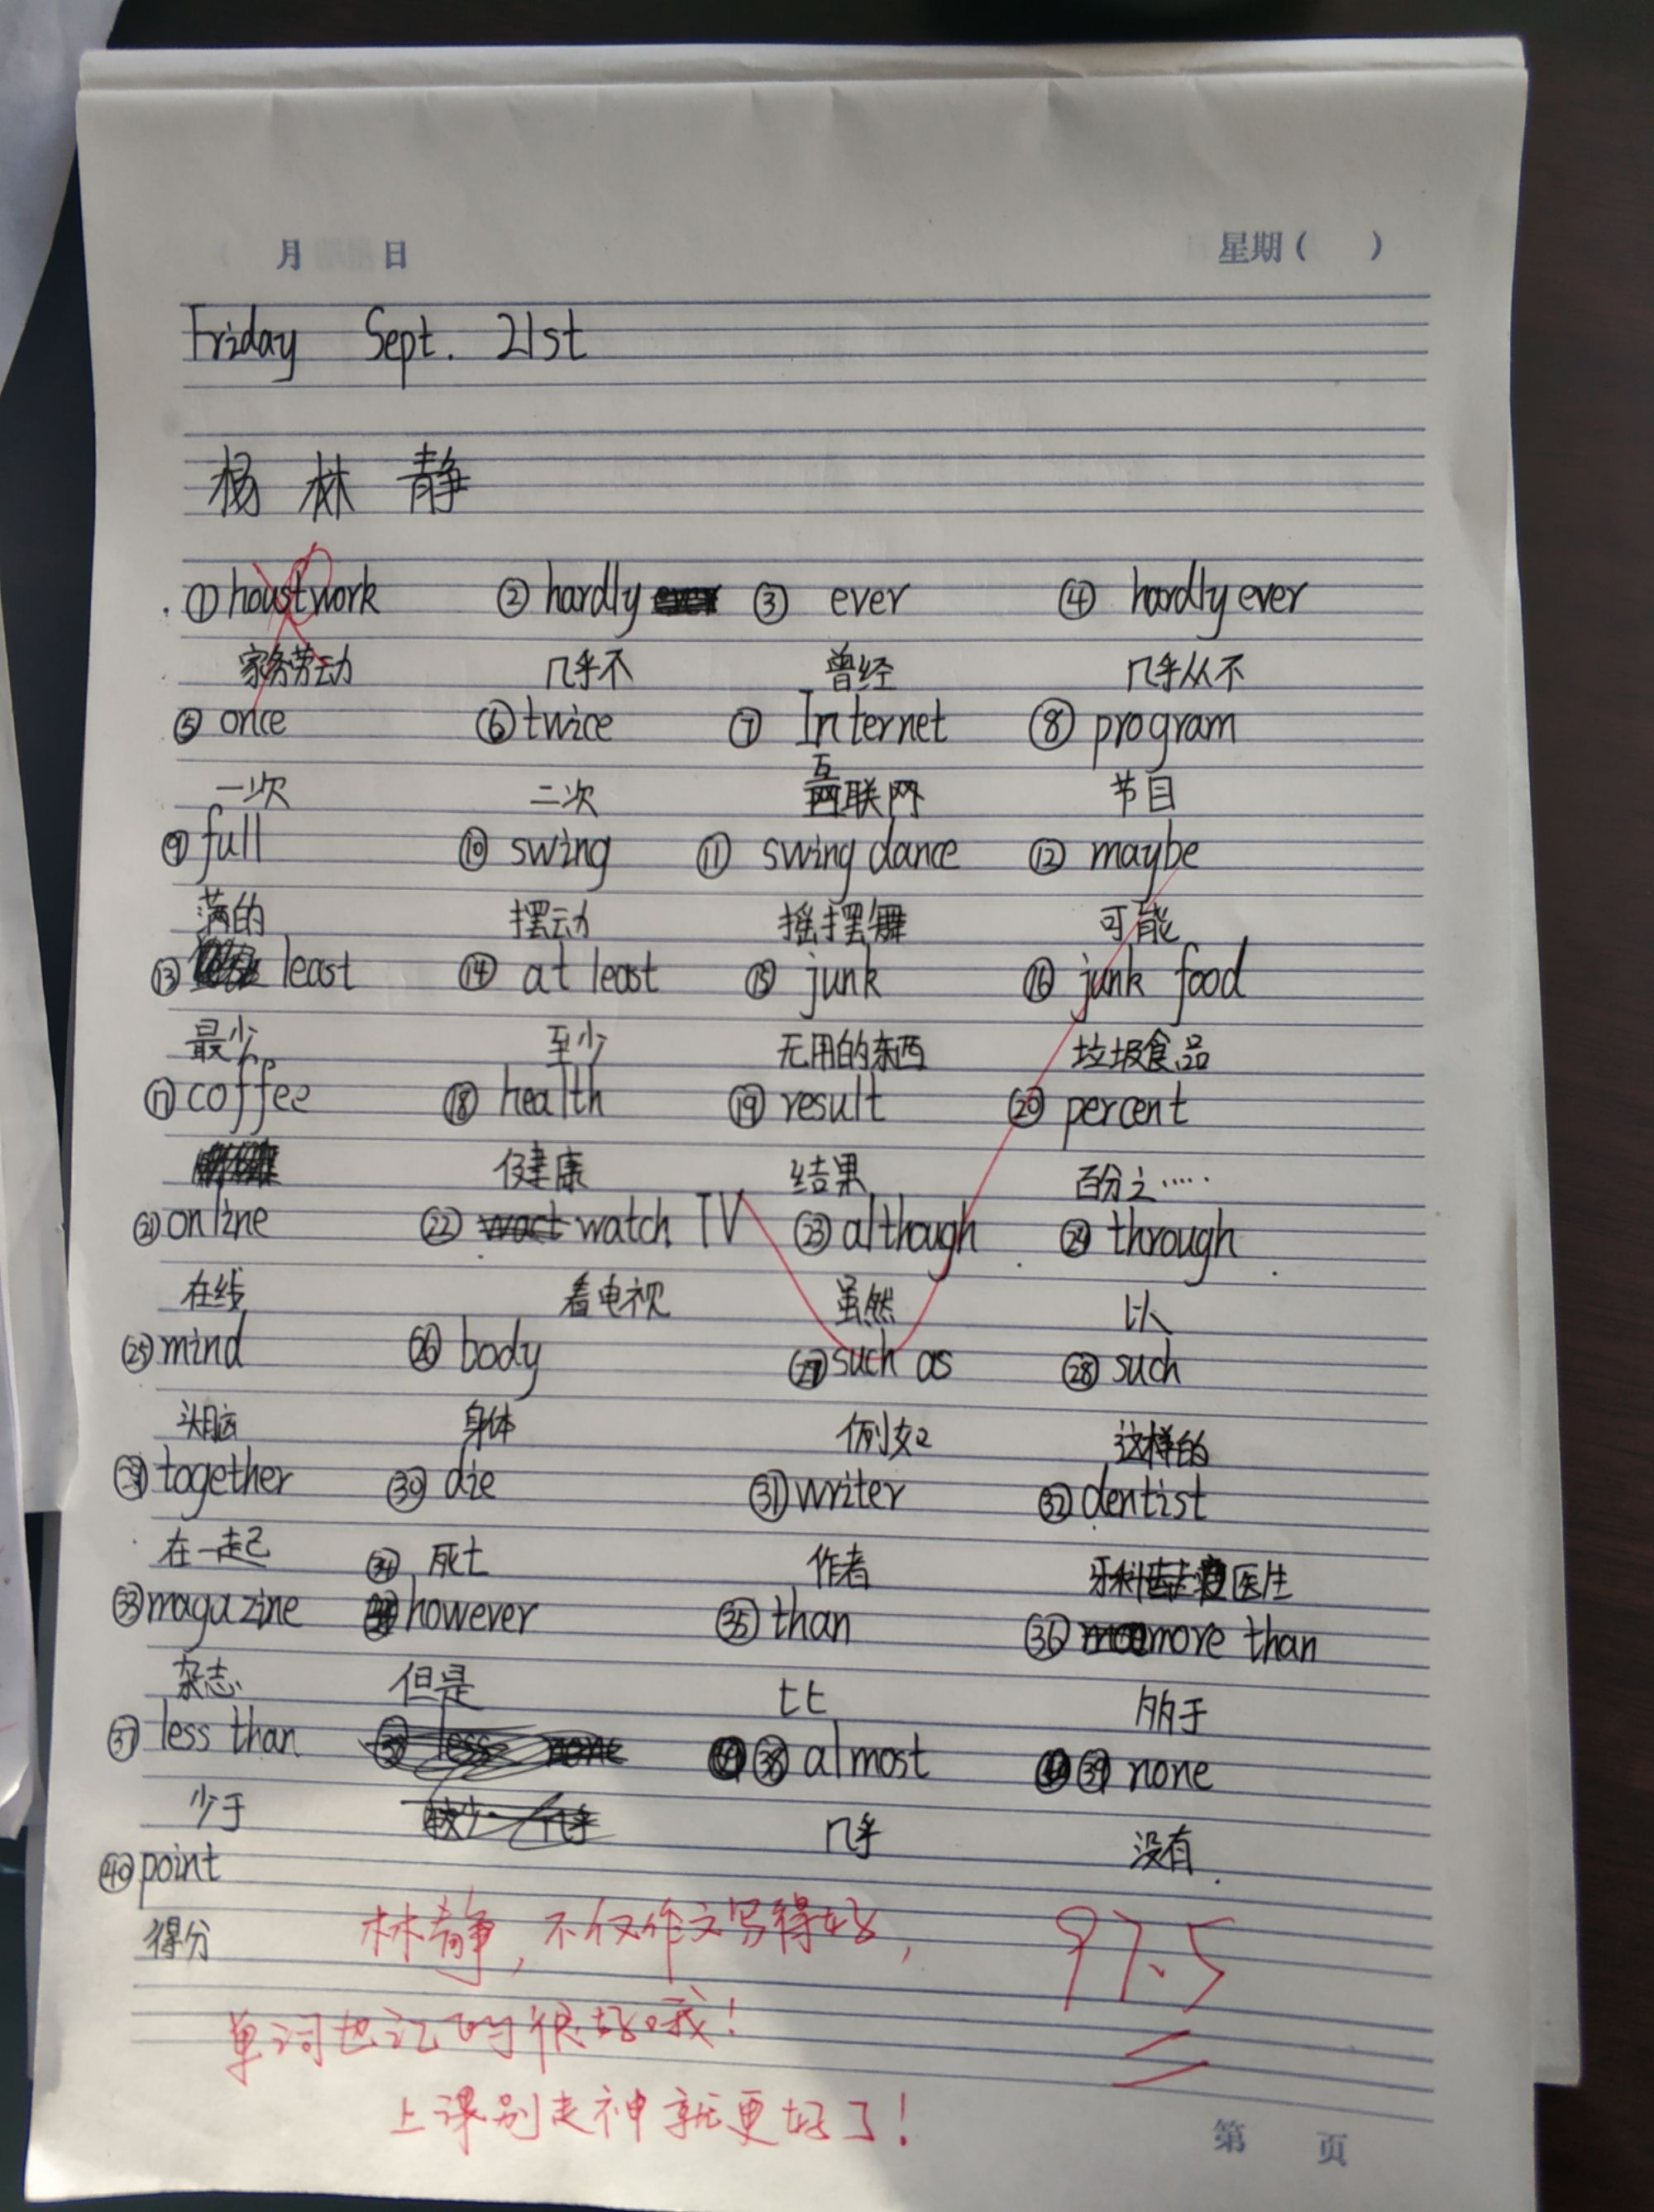 月 日 星期( )
Friday Sept. 21st
杨林静
① houstwork ② hardly ③ ever ④ hardly ever
家务劳动 几乎不 曾经 几乎从不
⑤ once ⑥ twice ⑦ Internet ⑧ program
一次 二次 互联网 节目
⑨ full ⑩ swing ⑪ swing dance ⑫ maybe
满的 摆动 摇摆舞 可能
⑬ least ⑭ at least ⑮ junk ⑯ junk food
最少 至少 无用的东西 垃圾食品
⑰ coffee ⑱ health ⑲ result ⑳ percent
健康 结果 百分之……
㉑ online ㉒ watch TV ㉓ although ㉔ through
在线 看电视 虽然 以
㉕ mind ㉖ body ㉗ such as ㉘ such
头脑 身体 例如 这样的
㉙ together ㉚ die ㉛ writer ㉜ dentist
在一起 死亡 作者 牙科医生
㉝ magazine ㉞ however ㉟ than ㊱ more than
杂志 但是 比 多于
㊲ less than ㊳ almost ㊴ none
少于 几乎 没有
㊵ point
得分
林静,不仅作文写得好,
单词也记的很好哦!
上课别走神就更好了!
97.5
第 页